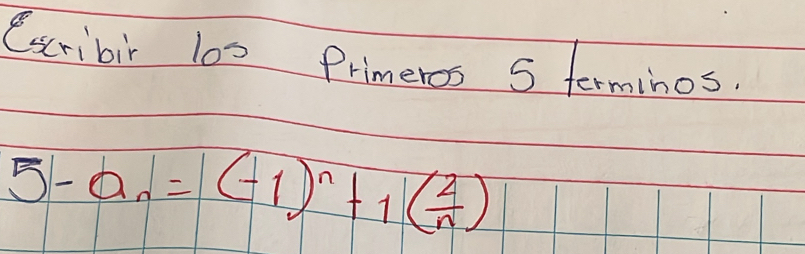 Escribir los Primeros 5 terminos.
5- aₙ = (-1)ⁿ + 1(2/n)